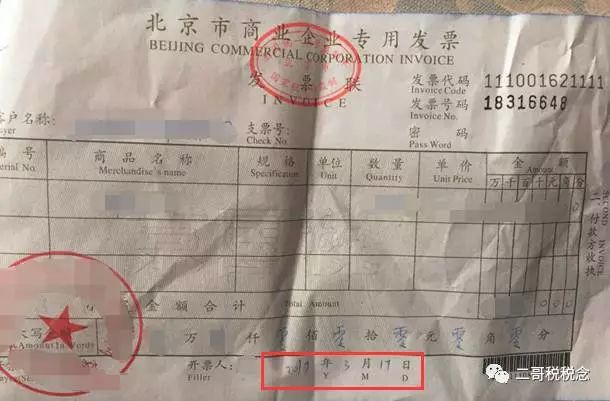 北京市商业企业专用发票
BEIJING COMMERCIAL CORPORATION INVOICE
发票联
INVOICE
发票代码 111001621111
Invoice Code
发票号码 18316648
Invoice No.
客户名称: 支票号: 密码
ayer Check No. Pass Word
编号 商品名称 规格 单位 数量 单价 金额
aterial No. Merchandise's name Specification Unit Quantity Unit Price Amount
万千百十元角分
二·付款方收执
金额合计 Total Amount
大写金额 万 仟 佰 零 拾 零 元 零 角 零 分
Amount In Words
开票人: 年 3 月 19 日
Filler Y M D
二哥税税念